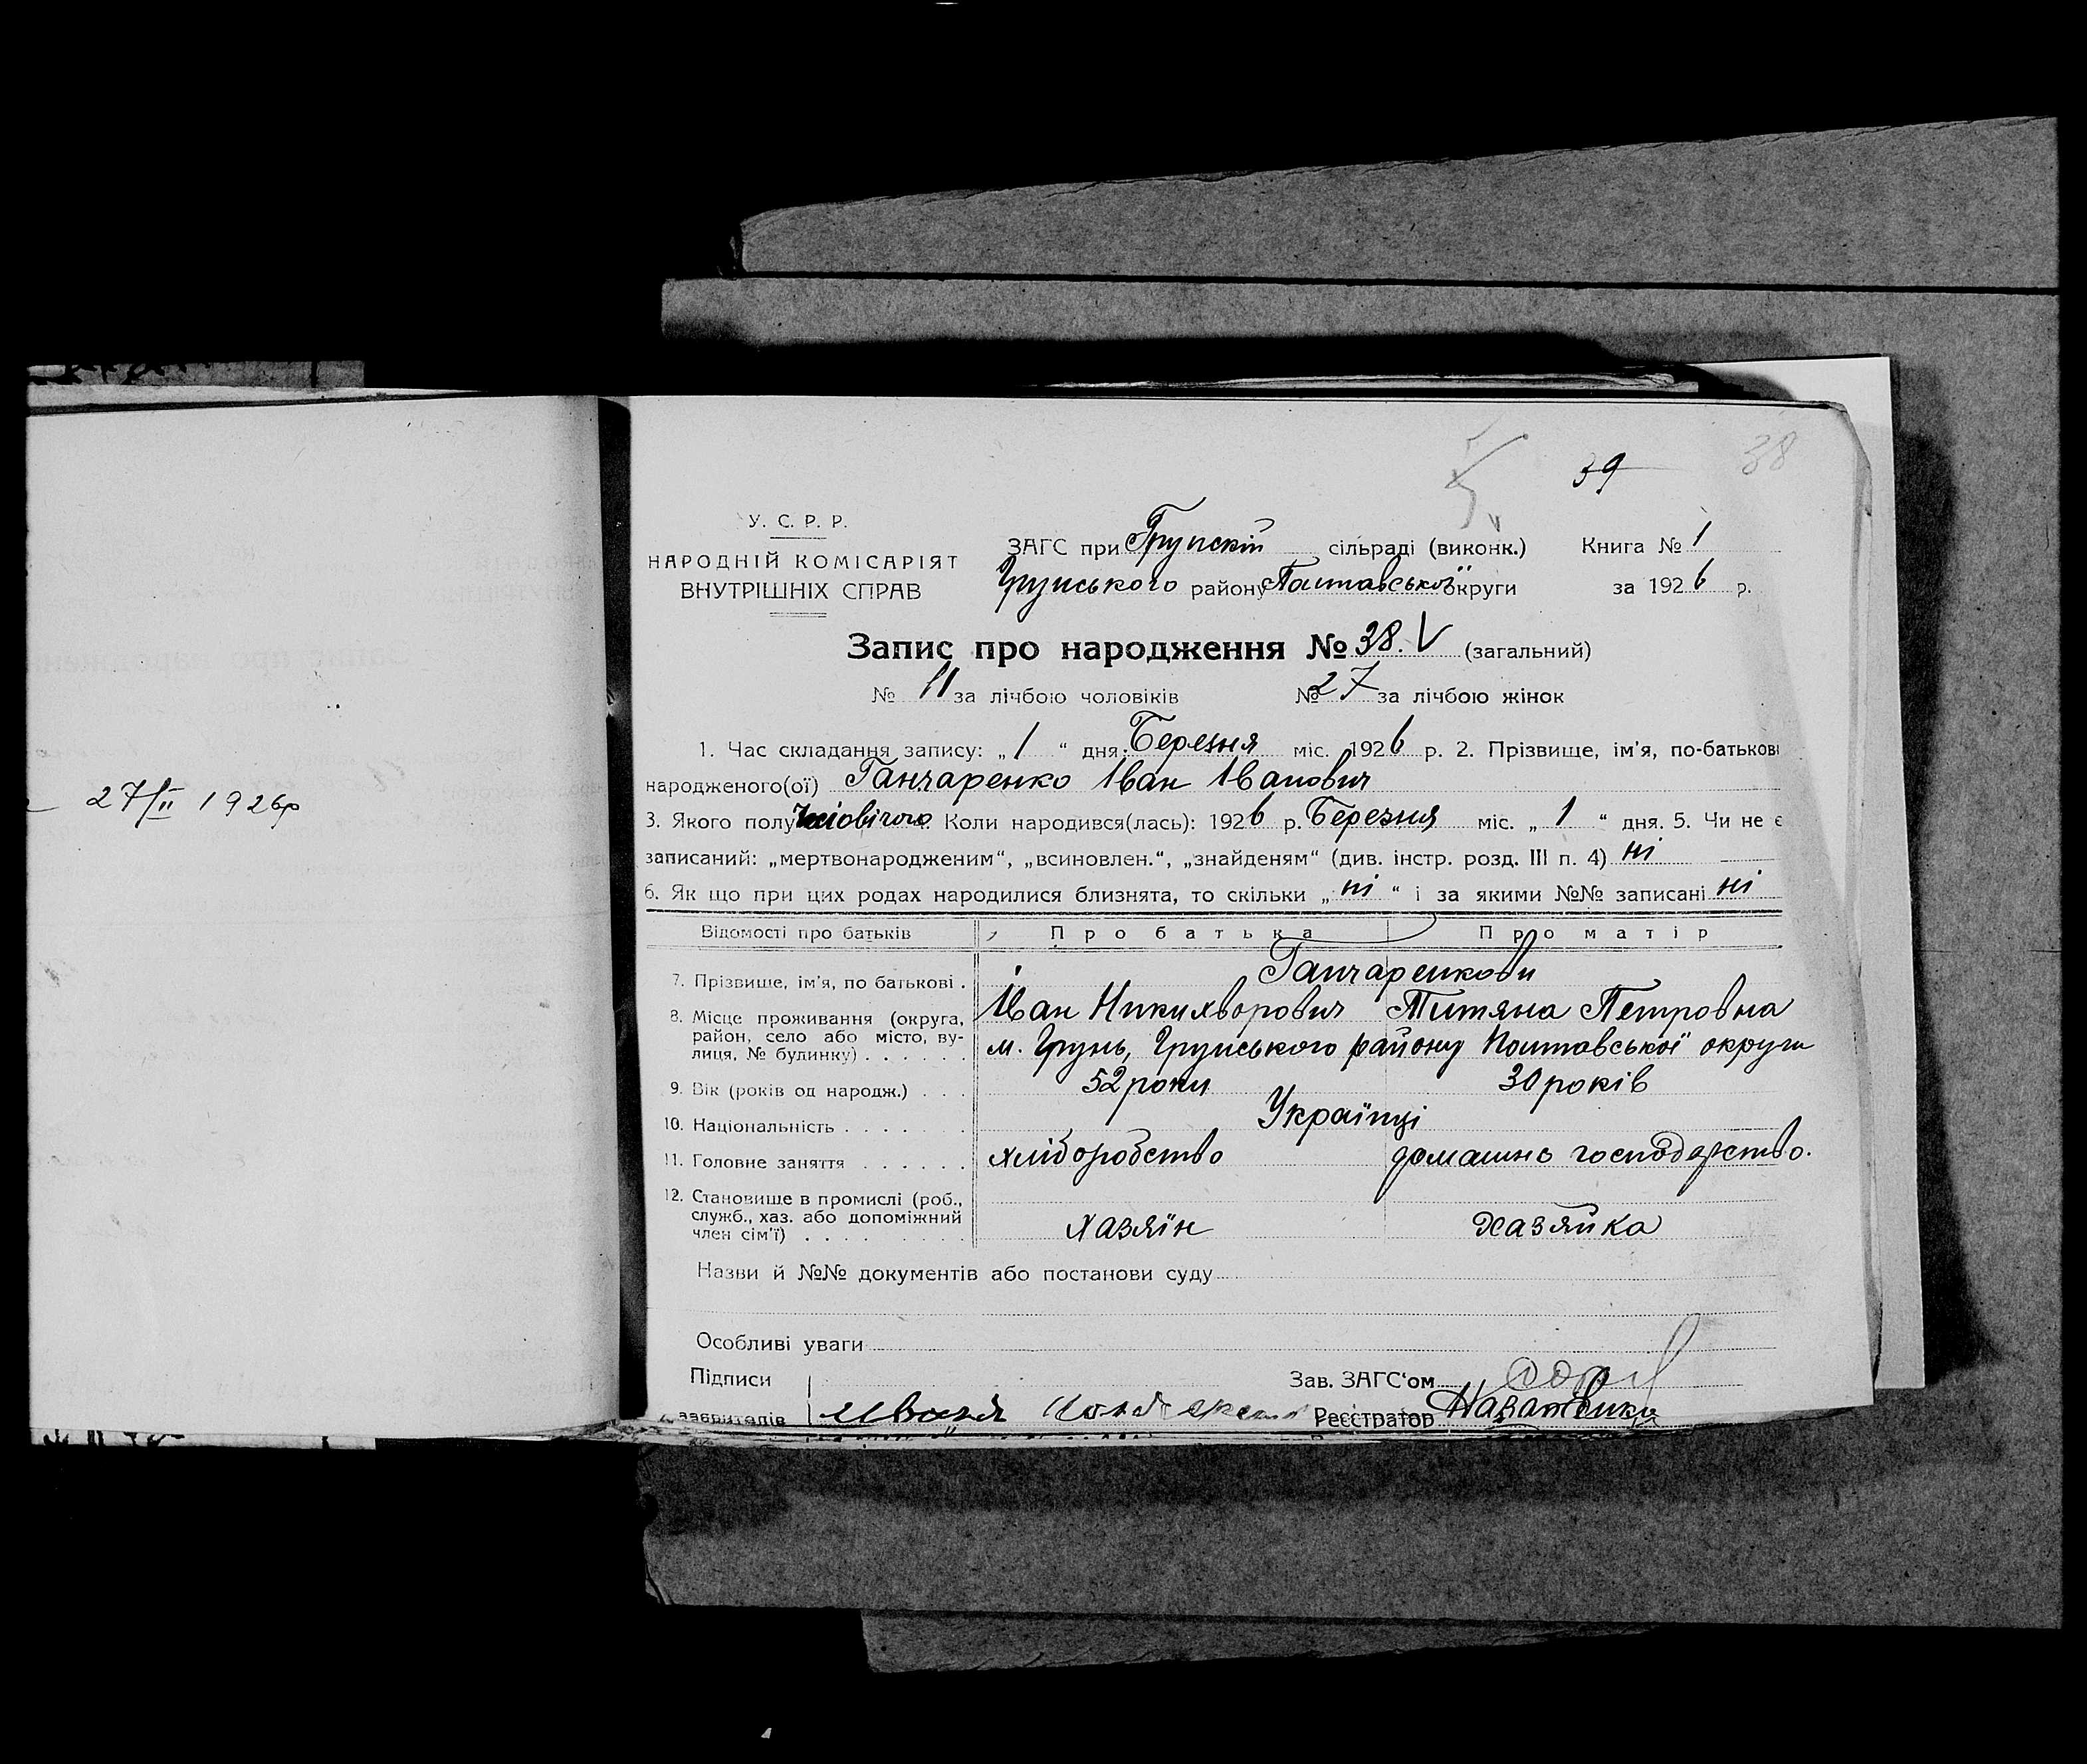 27/II 1926р
39
38
У. С. Р. Р.
НАРОДНІЙ КОМІСАРІЯТ
ВНУТРІШНІХ СПРАВ
ЗАГС при Грунскій сільраді (виконк.) Книга № 1
Грунського району Полтавської округи за 1926 р.
Запис про народження № 38. V (загальний)
№ 11 за лічбою чоловіків № 27 за лічбою жінок
1. Час складання запису: „1“ дня Березня міс. 1926 р. 2. Прізвище, ім'я, по-батькові
народженого(ої) Ганчаренко Іван Іванович
3. Якого полу Чоловічого. Коли народився(лась): 1926 р. Березня міс. „1“ дня. 5. Чи не є
записаний: „мертвонародженим“, „всиновлен.“, „знайденям“ (див. інстр. розд. III п. 4) ні
6. Як що при цих родах народилися близнята, то скільки „ні“ і за якими №№ записані ні
Відомості про батьків Про батька Про матір
Ганчаренкови
7. Прізвище, ім'я, по батькові . Іван Никихворович Титяна Петровна
8. Місце проживання (округа,
район, село або місто, ву-
лиця, № будинку) . . . . . . м. Грунь, Грунського району Полтавської округи
9. Вік (років од народж.) . . . 52 роки 30 років
10. Національність . . . . . . . Українці
11. Головне заняття . . . . . . хліборобство домашнє господарство.
12. Становище в промислі (роб.,
служб., хаз. або допоміжний
член сім'ї) . . . . . . . . . хазяїн хазяйка
Назви й №№ документів або постанови суду
Особливі уваги
Підписи Зав. ЗАГС'ом
Ивана Реєстратор